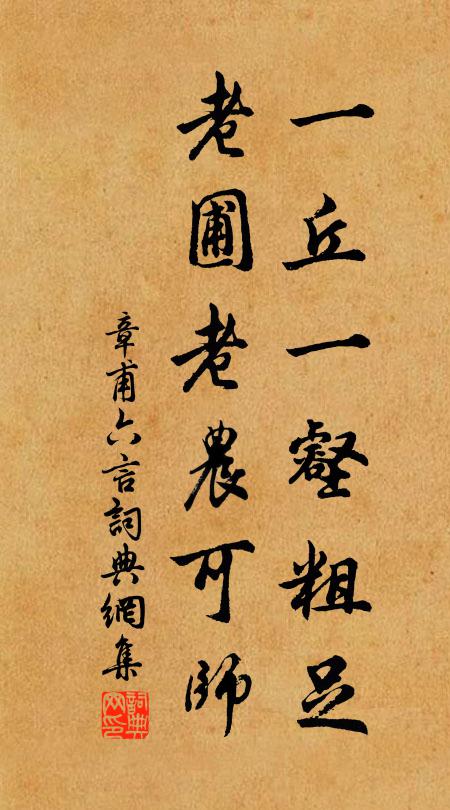 一丘一壑粗足
老圃老農可師
章甫六言詞典網集
詞典網印